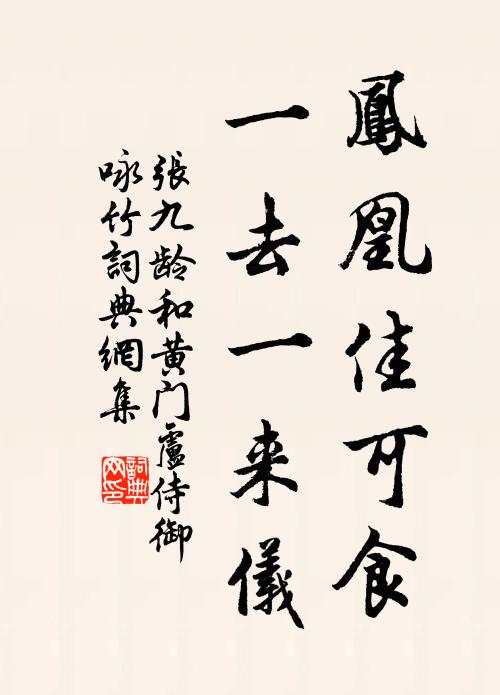 鳳凰佳可食
一去一来儀
張九龄和黄门盧侍御
咏竹詞典網集
詞典网印